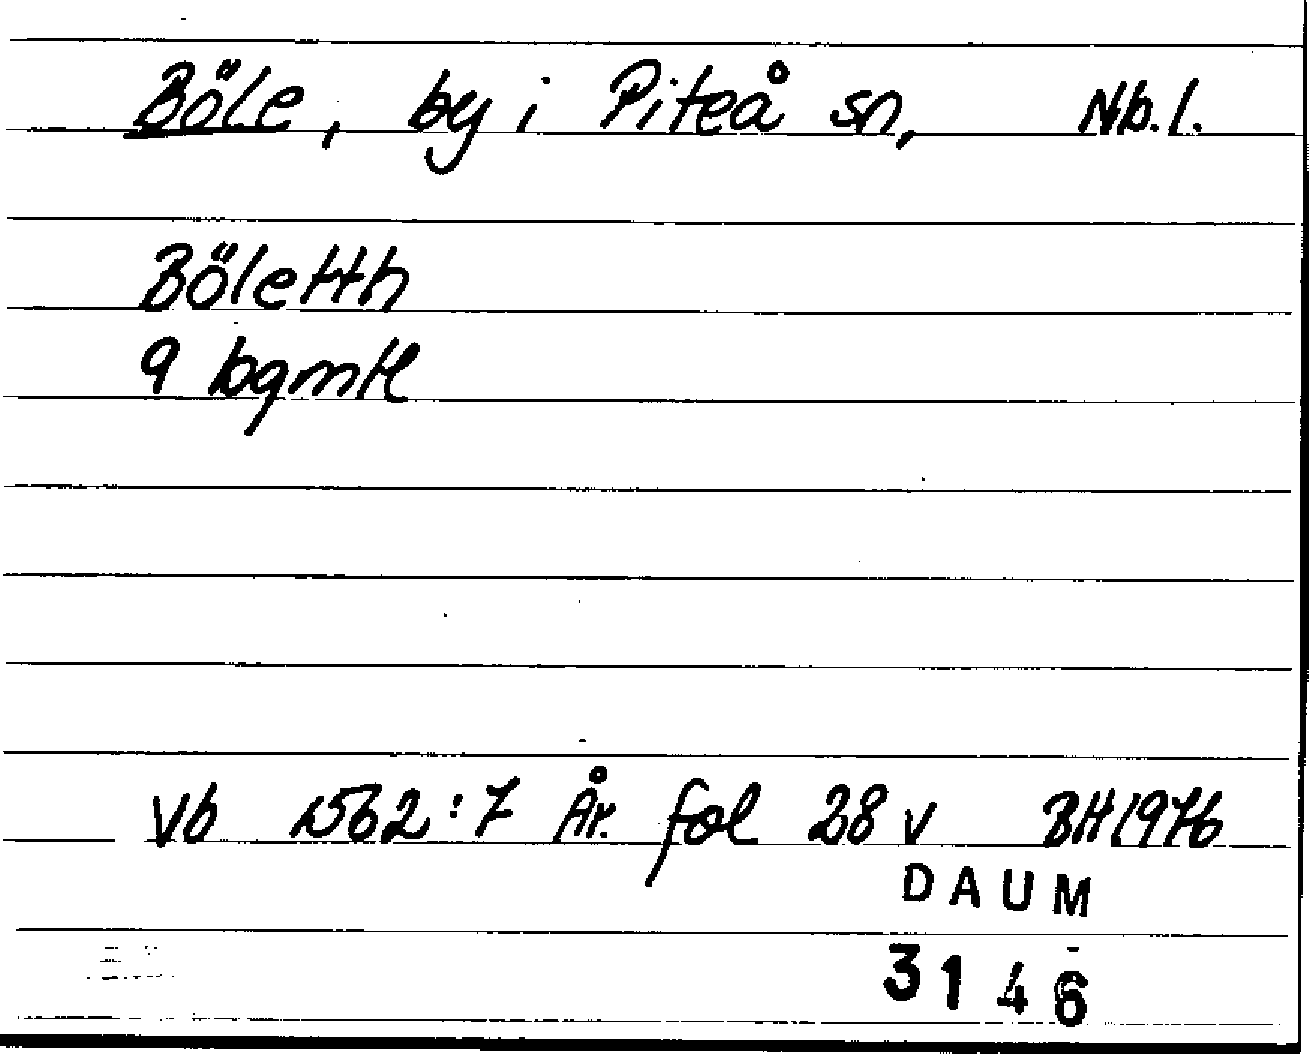 Böle, by i Piteå sn, Nb.l.
Böletth
9 bgmtl
Vb 1562:7 År. fol 28 v BH 1976
DAUM
3146